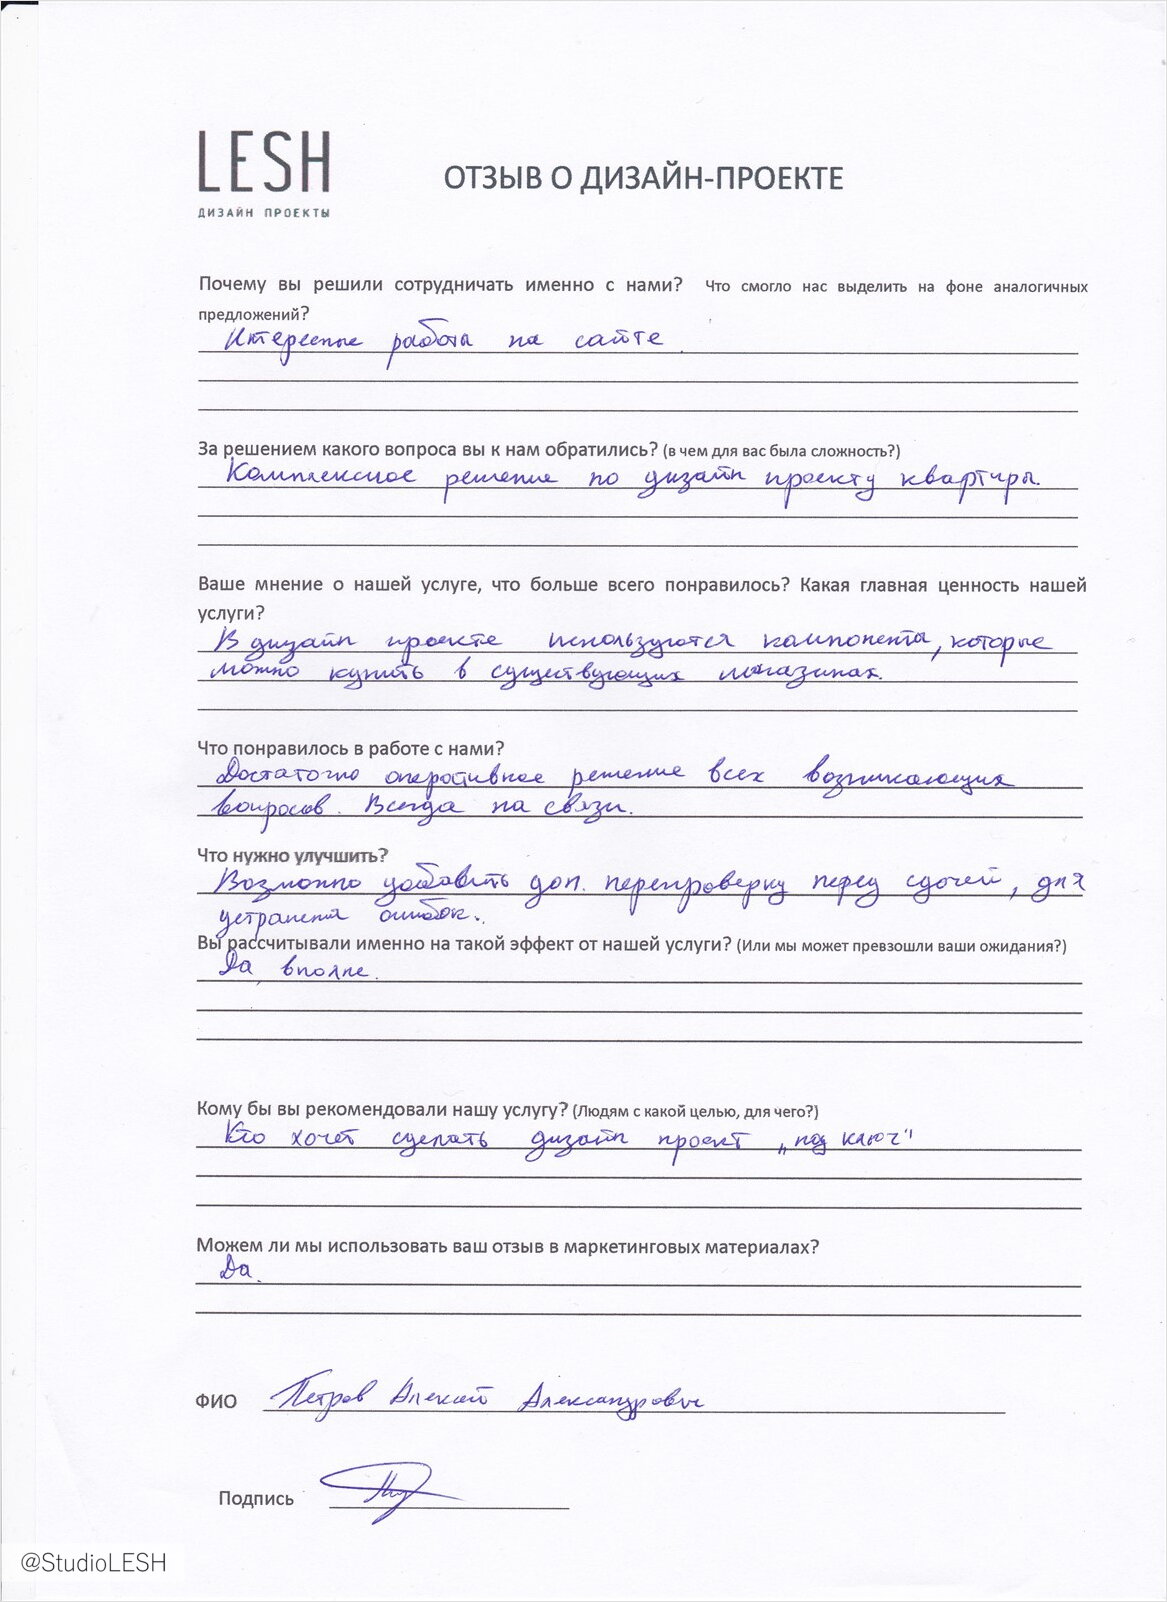 LESH
ДИЗАЙН ПРОЕКТЫ
ОТЗЫВ О ДИЗАЙН-ПРОЕКТЕ
Почему вы решили сотрудничать именно с нами? Что смогло нас выделить на фоне аналогичных
предложений?
Интересные работы на сайте.
За решением какого вопроса вы к нам обратились? (в чем для вас была сложность?)
Комплексное решение по дизайн проекту квартиры.
Ваше мнение о нашей услуге, что больше всего понравилось? Какая главная ценность нашей
услуги?
В дизайн проекте используются компоненты, которые
можно купить в существующих магазинах.
Что понравилось в работе с нами?
Достаточно оперативное решение всех возникающих
вопросов. Всегда на связи.
Что нужно улучшить?
Возможно добавить доп. перепроверку перед сдачей, для
устранения ошибок.
Вы рассчитывали именно на такой эффект от нашей услуги? (Или мы может превзошли ваши ожидания?)
Да, вполне.
Кому бы вы рекомендовали нашу услугу? (Людям с какой целью, для чего?)
Кто хочет сделать дизайн проект „под ключ"
Можем ли мы использовать ваш отзыв в маркетинговых материалах?
Да.
ФИО Петров Алексей Александрович
Подпись
@StudioLESH